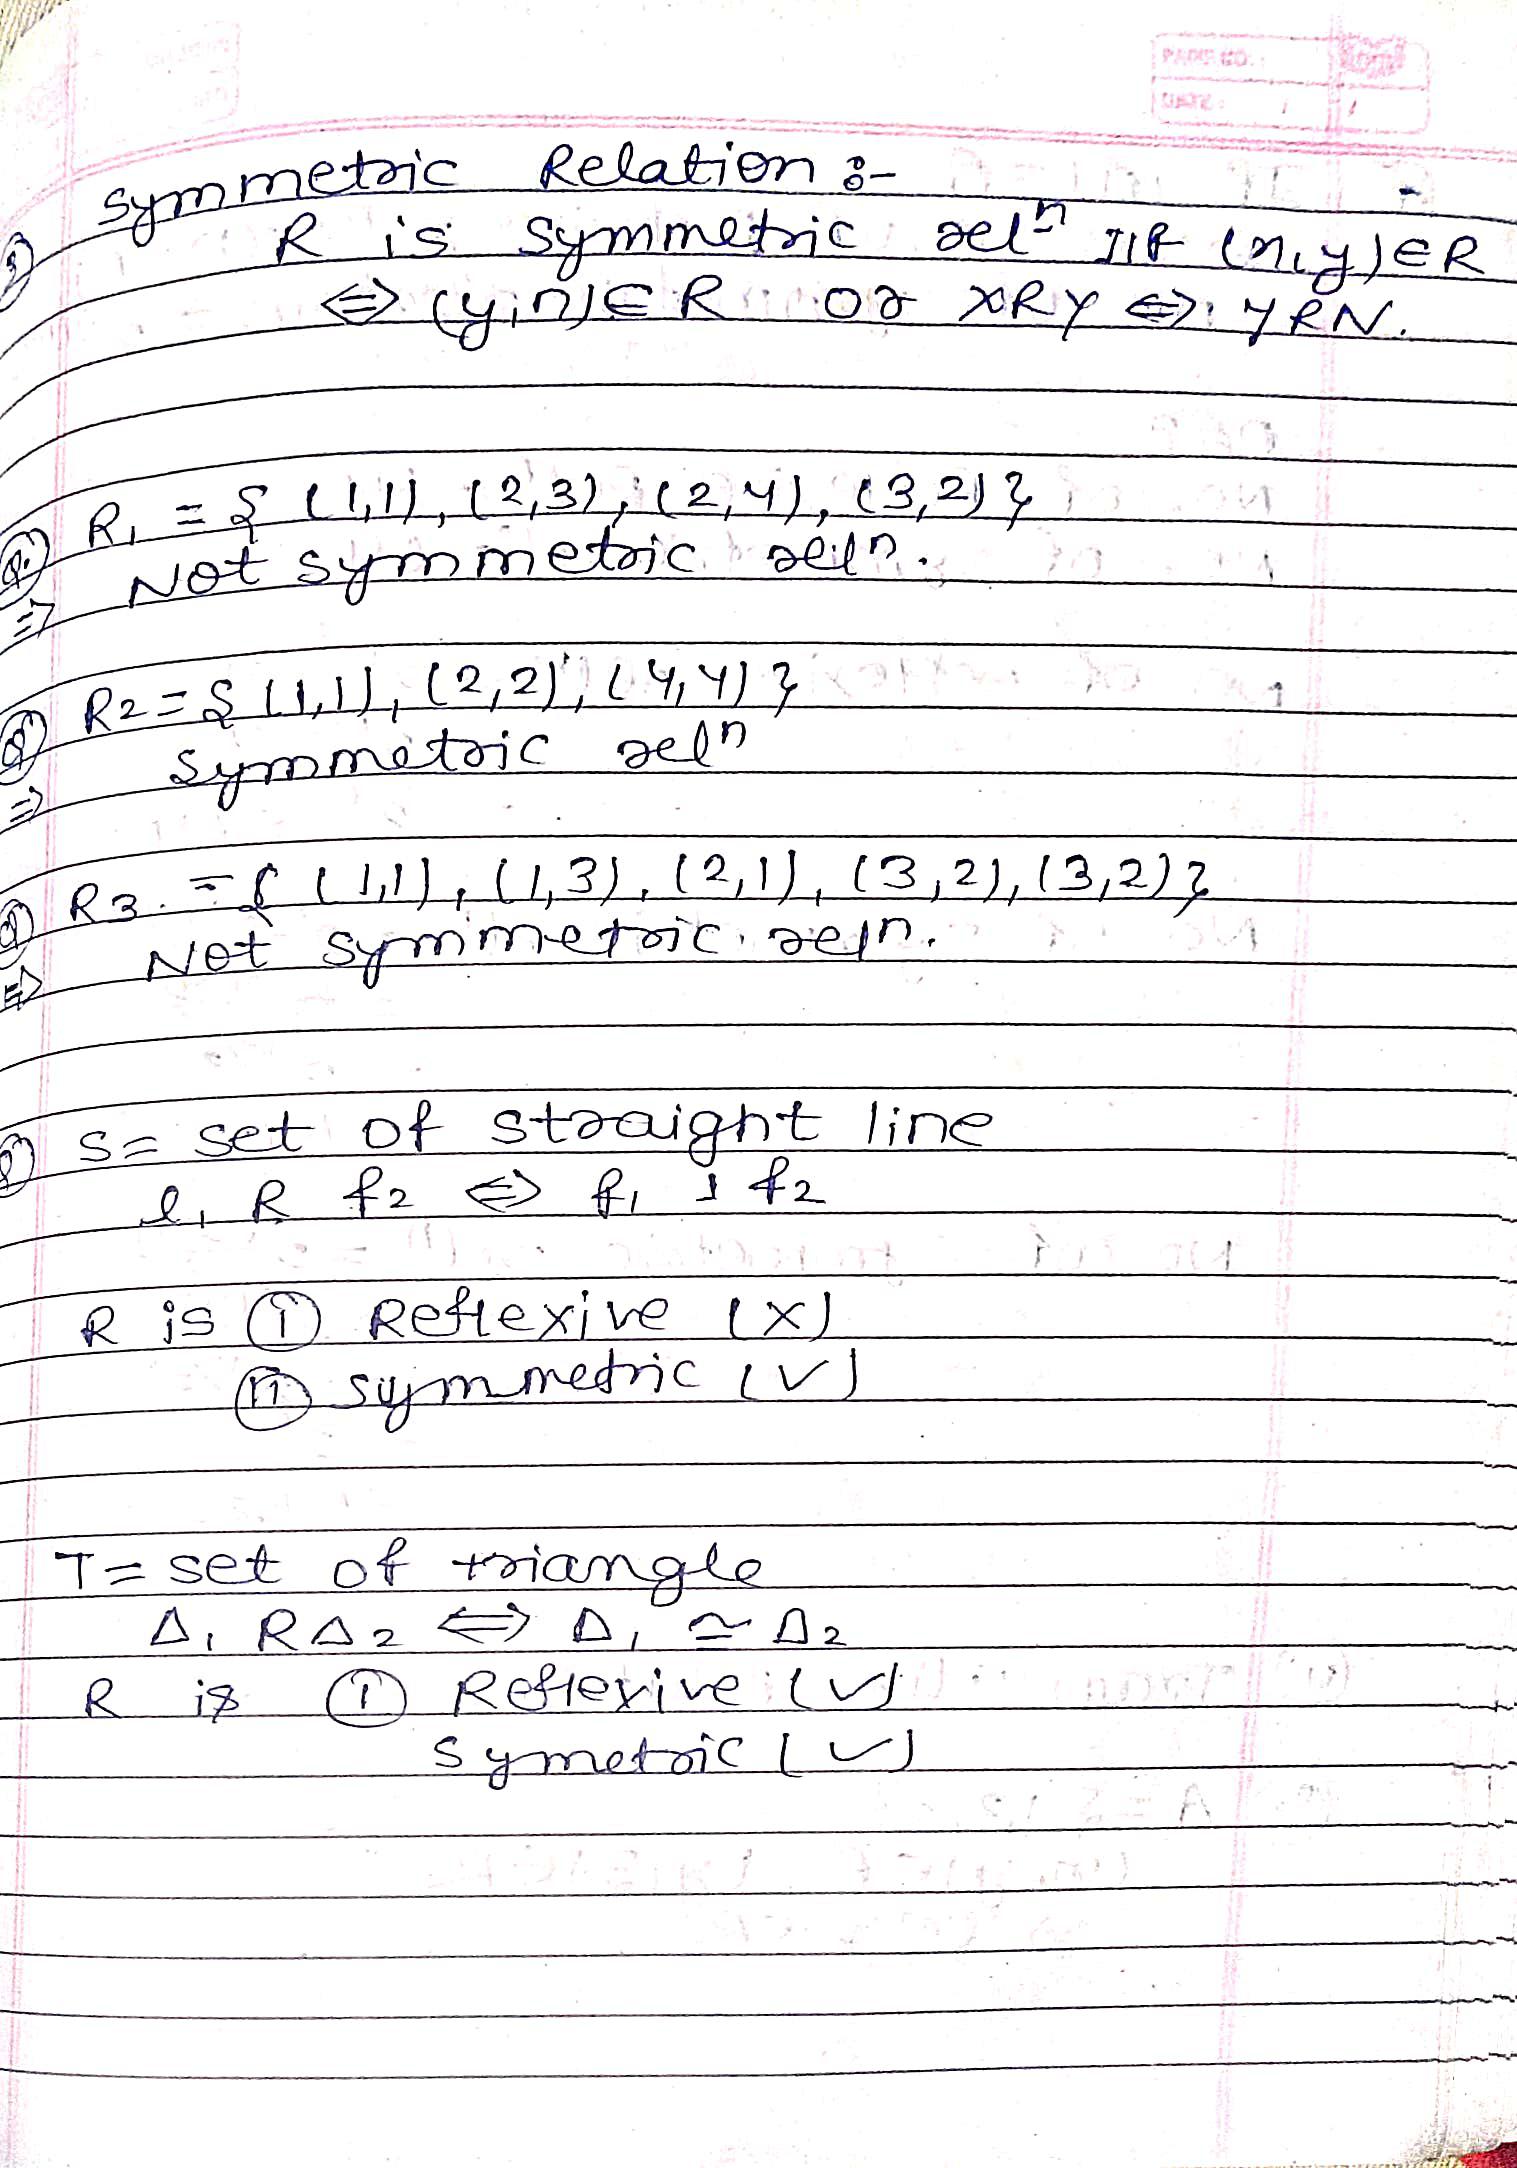 PAGE NO. :
DATE : / /
③ Symmetric Relation :-
R is symmetric relⁿ IIf (n,y)∈R
⇔ (y,n)∈R or xRy ⇔ yRN.
Q. R₁ = { (1,1), (2,3), (2,4), (3,2) }
⇒ Not symmetric relⁿ.
Q R2 = { (1,1), (2,2), (4,4) }
⇒ Symmetric relⁿ
Q R3. = { (1,1), (1,3), (2,1), (3,2), (3,2) }
⇒ Not symmetric reln.
Q S = set of straight line
l₁ R f2 ⇔ f₁ ⊥ f2
R is ⓘ Reflexive (X)
ⓘⓘ symmetric (✓)
T = set of triangle
Δ₁ R Δ2 ⇔ Δ₁ ≅ Δ2
R is ⓘ Reflexive (✓)
Symetric (✓)